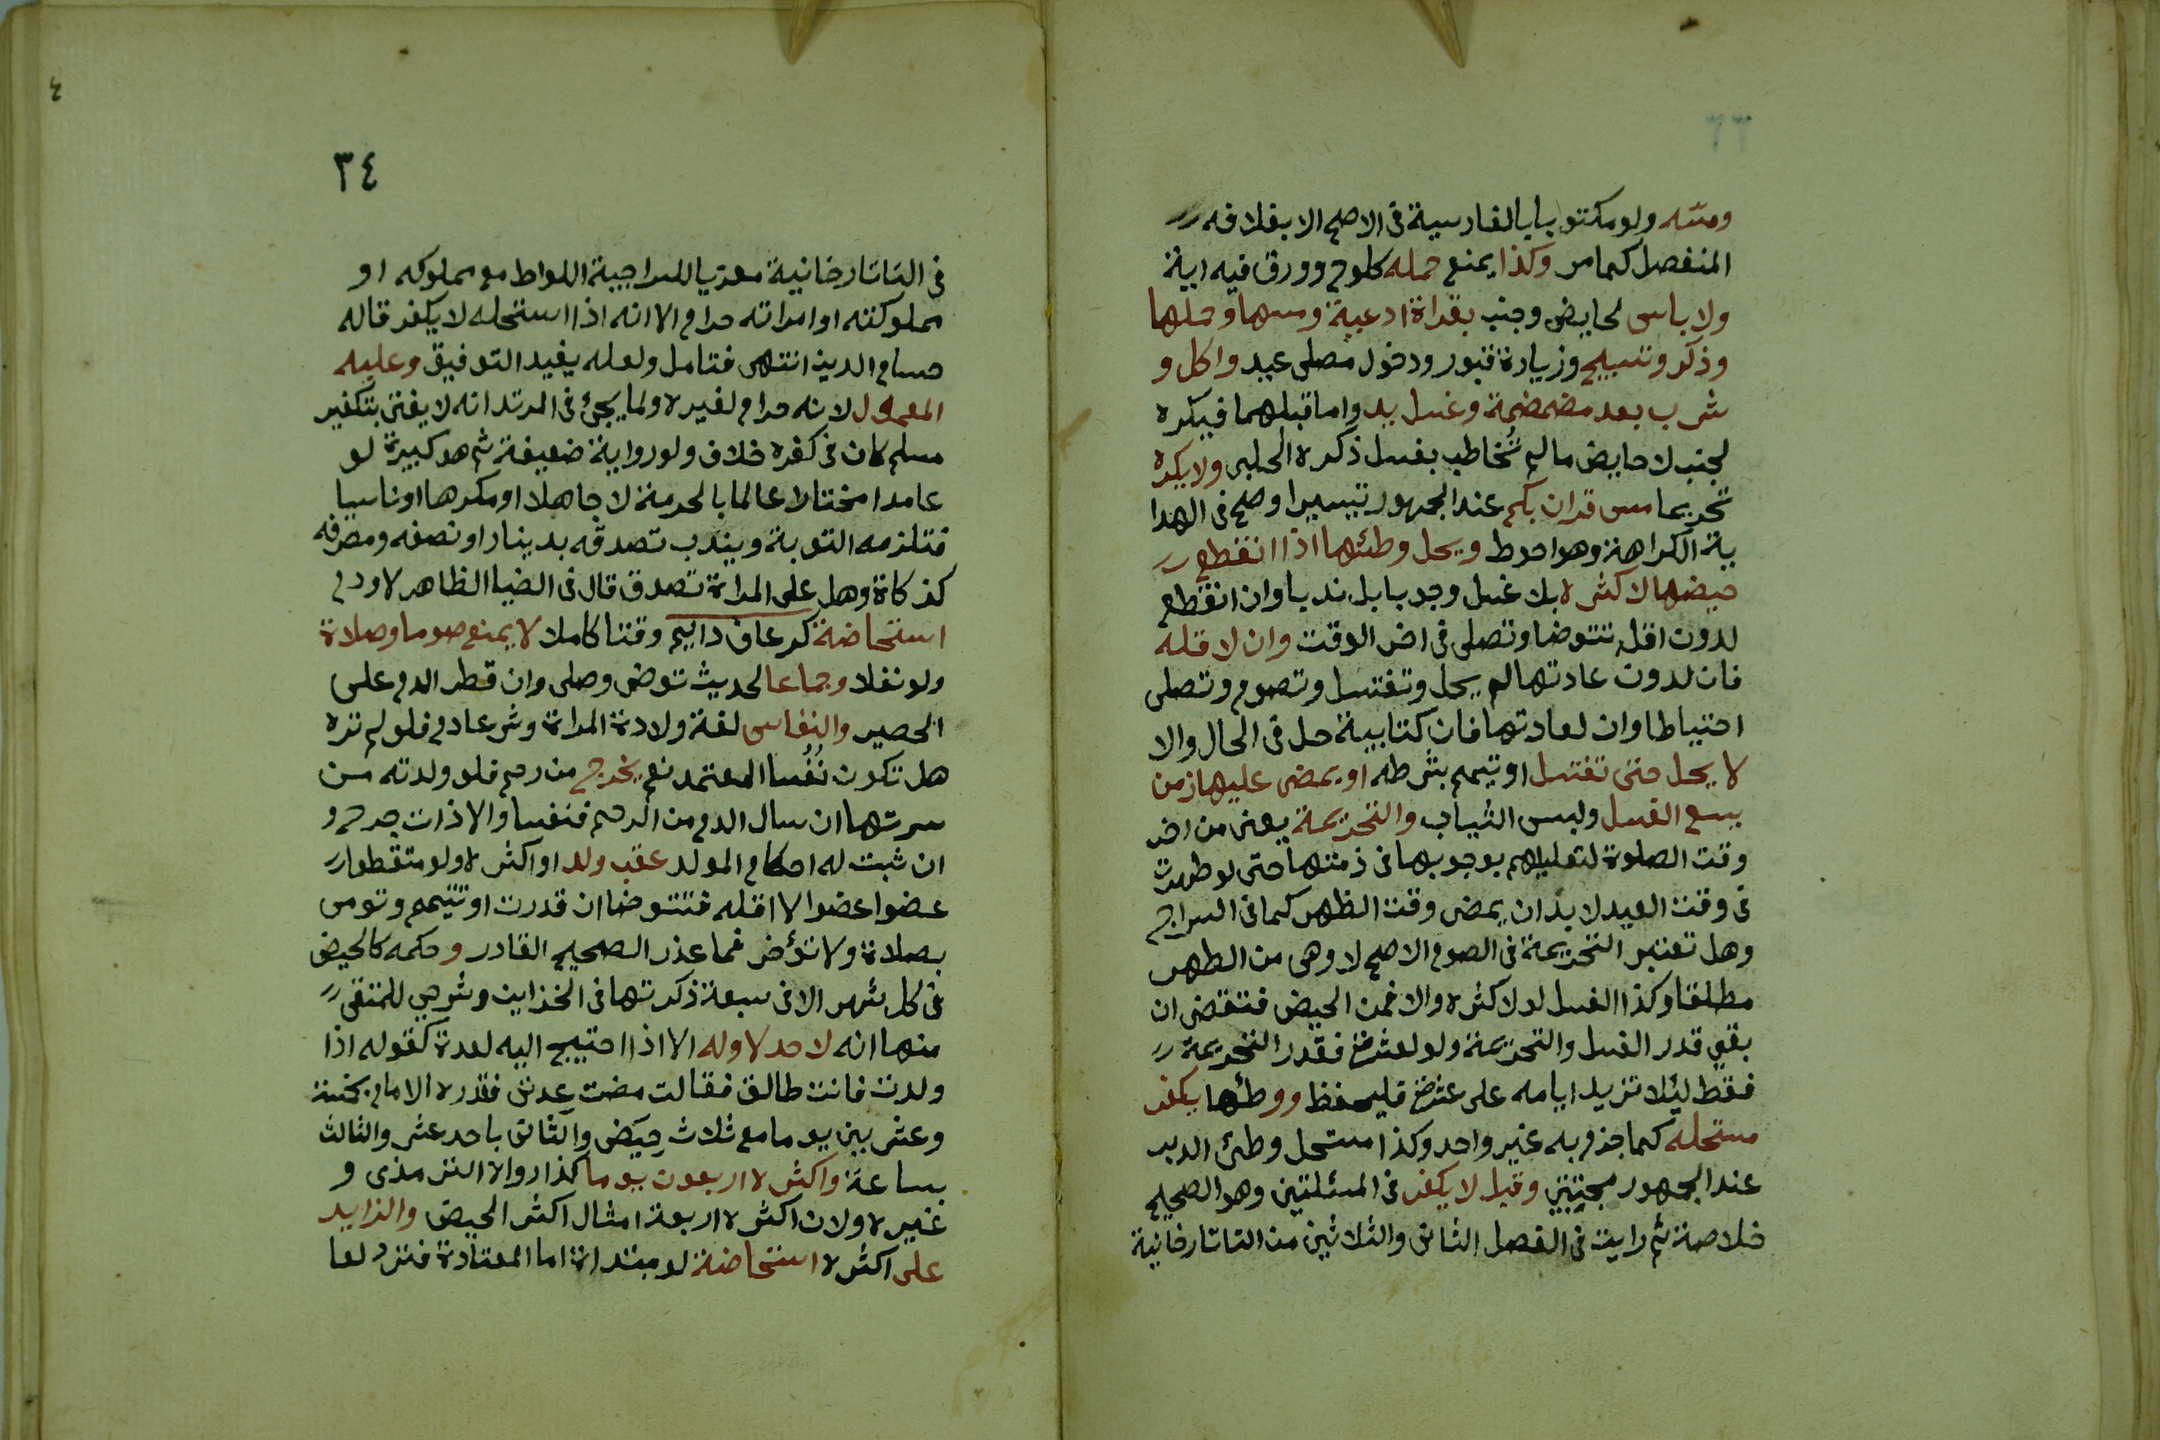 ومسه ولو مكتوبا بالفارسية فى الاصح الا بغلافه
المنفصل كما مر وكذا يمنع حمله كلوح وورق فيه اية
ولا باس لحايض وجنب بقراة ادعية ومسها وحملها
وذكر وتسبيح وزيارة قبور ودخول مصلى عيد واكل و
شرب بعد مضمضة وغسل يد واما قبلهما فيكره
لجنب لا حايض ما لم تُخاطب بغسل ذكره الحلبى ولا يكره
تحريما مس قران بكم عند الجمهور تيسيرا وصح فى الهدا
ية الكراهة وهو احوط ويحل وطئها اذا انقطع
حيضها لاكثره بلا غسل وجوبا بل ندبا وان انقطع
لدون اقله تتوضا وتصلى فى اخر الوقت وان لاقله
فان لدون عادتها لم يحل وتغتسل وتصوم وتصلى
احتياطا وان لعادتها فان كتابية حل فى الحال والا
لا يحل حتى تغتسل او تيمم بشرطه او يمضى عليها زمن
يسع الغسل ولبس الثياب والتحريمة يعنى من اخر
وقت الصلوة لتعليلهم بوجوبها فى ذمتها حتى لو طهرت
فى وقت العيد لا بد ان يمضى وقت الظهر كما فى السراج
وهل تعتبر التحريمة فى الصوم الاصح لا وهى من الطهر
مطلقا وكذا الغسل لو لاكثره والا فمن الحيض فتقضى ان
بقى قدر الغسل والتحريمة ولو لعشرة فقدر التحريمة
فقط ليلا تزيد ايامه على عشرة فليحفظ ووطئها يكفر
مستحله كما جزم به غير واحد وكذا مستحل وطئ الدبر
عند الجمهور مجتبى وقيل لا يكفر فى المسئلتين وهو الصحيح
خلاصة ثم رايت فى الفصل الثانى والثلاثين من التاتارخانية
٣٤
فى التاتارخانية معزيا للسراجية اللواط مع مملوكه او
مملوكته او امراته حرام الا انه اذا استحله لا يكفر قاله
حسام الدين انتهى فتامل ولعله يفيد التوفيق وعليه
المعول لانه حرام لغيره ولما يجئ فى المرتد انه لا يفتى بتكفير
مسلم كان فى كفره خلاف ولو رواية ضعيفة ثم هو كبيرة لو
عامدا مختارا عالما بالحرمة لا جاهلا او مكرها او ناسيا
فتلزمه التوبة ويندب تصدقه بدينار او نصفه ومصرفه
كزكاة وهل على المراة تصدق قال فى الضيا الظاهر لا ودم
استحاضة كرعاف دايم وقتا كاملا لا يمنع صوما وصلاة
ولو نفلا وجماعا لحديث توضى وصلى وان قطر الدم على
الحصير والنفاس لغة ولادة المراة وشرعا دم فلو لم تره
هل تكون نُفَسا المعتمد نعم يخرج من رحم فلو ولدته من
سرتها ان سال الدم من الرحم فنفسا والا ذات جرح و
ان ثبت له احكام الولد عقب ولد او اكثره ولو متقطعا
عضوا عضوا لا اقله فتتوضا ان قدرت او تتيمم وتومى
بصلاة ولا تؤخر فما عذر الصحيح القادر وحكمه كالحيض
فى كل شهر الا فى سبعة ذكرتها فى الخزاين وشرحى للملتقى
منها انه لا حد لاوله الا اذا احتيج اليه لعدة كقوله اذا
ولدت فانت طالق فقالت مضت عدتى فقدره الامام بخمسة
وعشرين يوما مع ثلاث حيض والثانى باحد عشر والثالث
بساعة واكثره اربعون يوما كذا رواه الترمذى و
غيره ولان اكثره اربعة امثال اكثر الحيض والزايد
على اكثره استحاضة لو مبتداة اما المعتادة فترد لعا